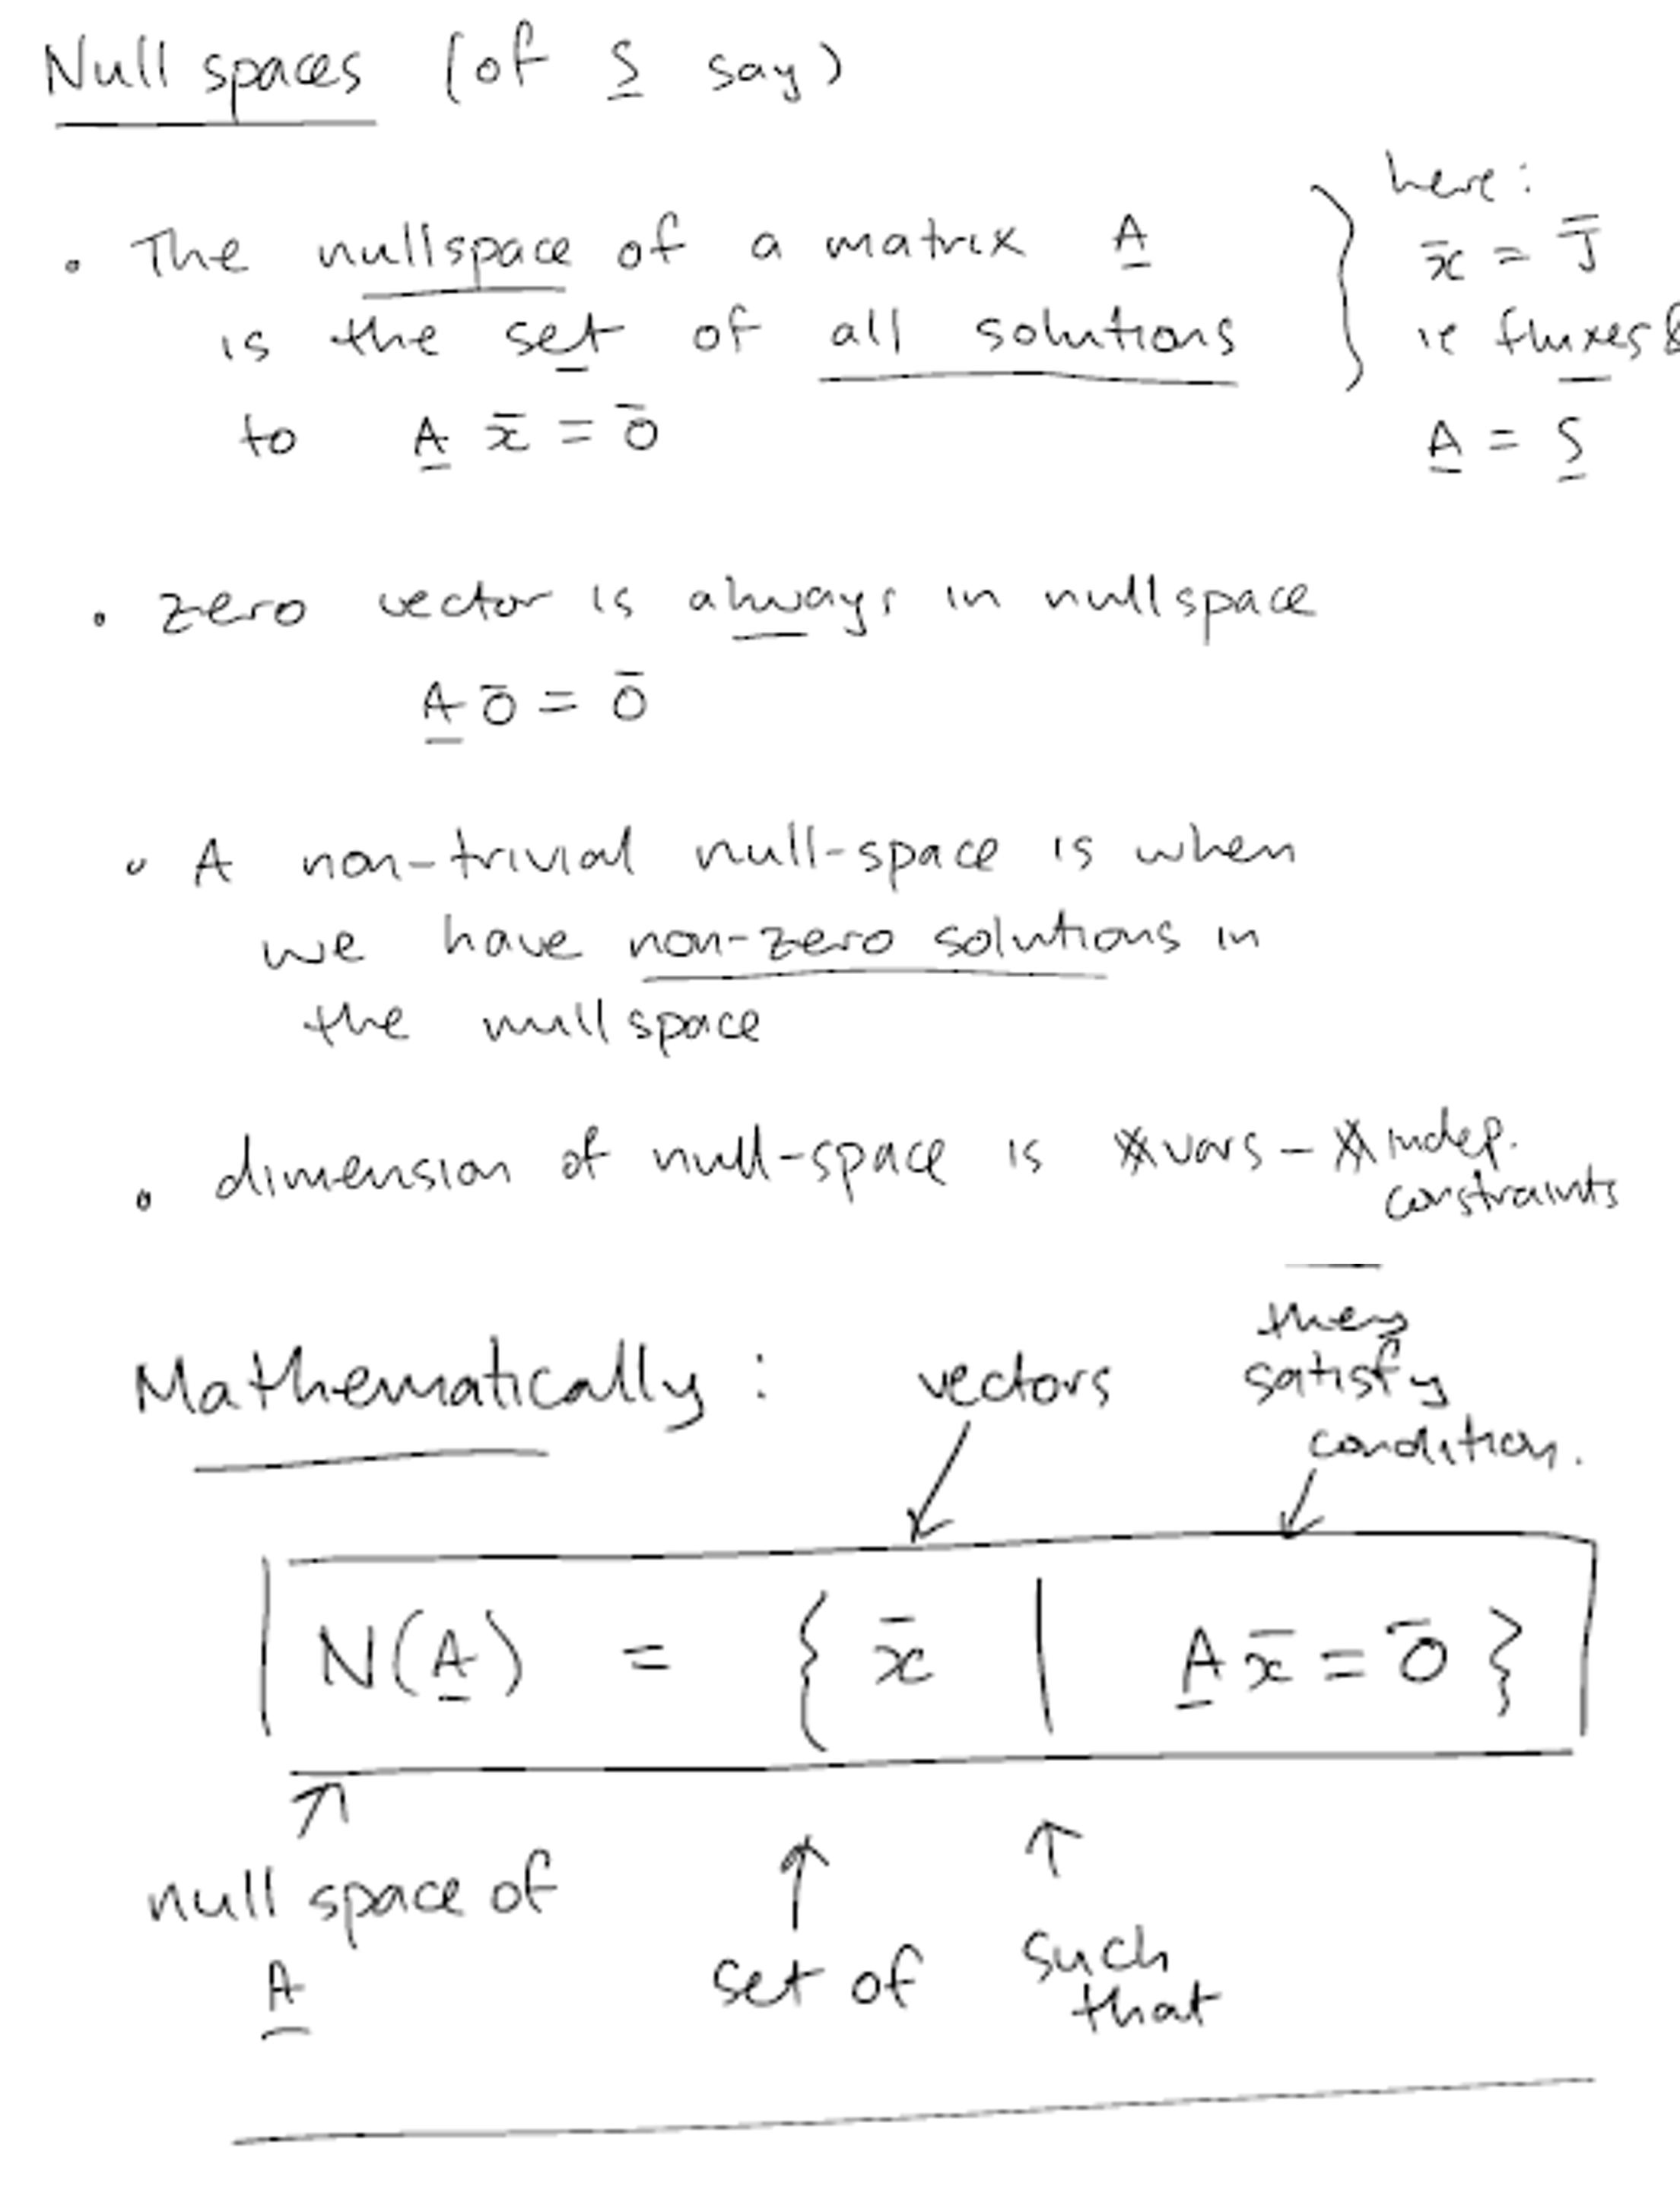 Null spaces (of S say)
here:
• The nullspace of a matrix A
x̄ = J̄
is the set of all solutions
ie fluxes &
to A x̄ = 0̄
A = S
• zero vector is always in nullspace
A 0̄ = 0̄
• A non-trivial null-space is when
we have non-zero solutions in
the nullspace
• dimension of null-space is # vars - # indep.
constraints
they
Mathematically : vectors satisfy
condition.
N(A) = { x̄ | A x̄ = 0̄ }
null space of
A
set of
such
that